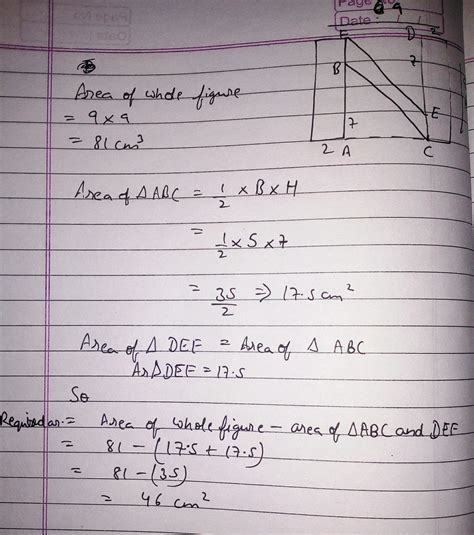 Page No.
Date
Page No
Date:
9
E
D
2
B
7
E
7
2
A
C
Area of whole figure
= 9 x 9
= 81 cm³
Area of ΔABC = 1/2 x B x H
= 1/2 x 5 x 7
= 35/2 => 17.5 cm²
Area of Δ DEF = Area of Δ ABC
Ar Δ DEF = 17.5
So
Required ar. = Area of whole figure - area of ΔABC and DEF
= 81 - (17.5 + 17.5)
= 81 - (35)
= 46 cm²